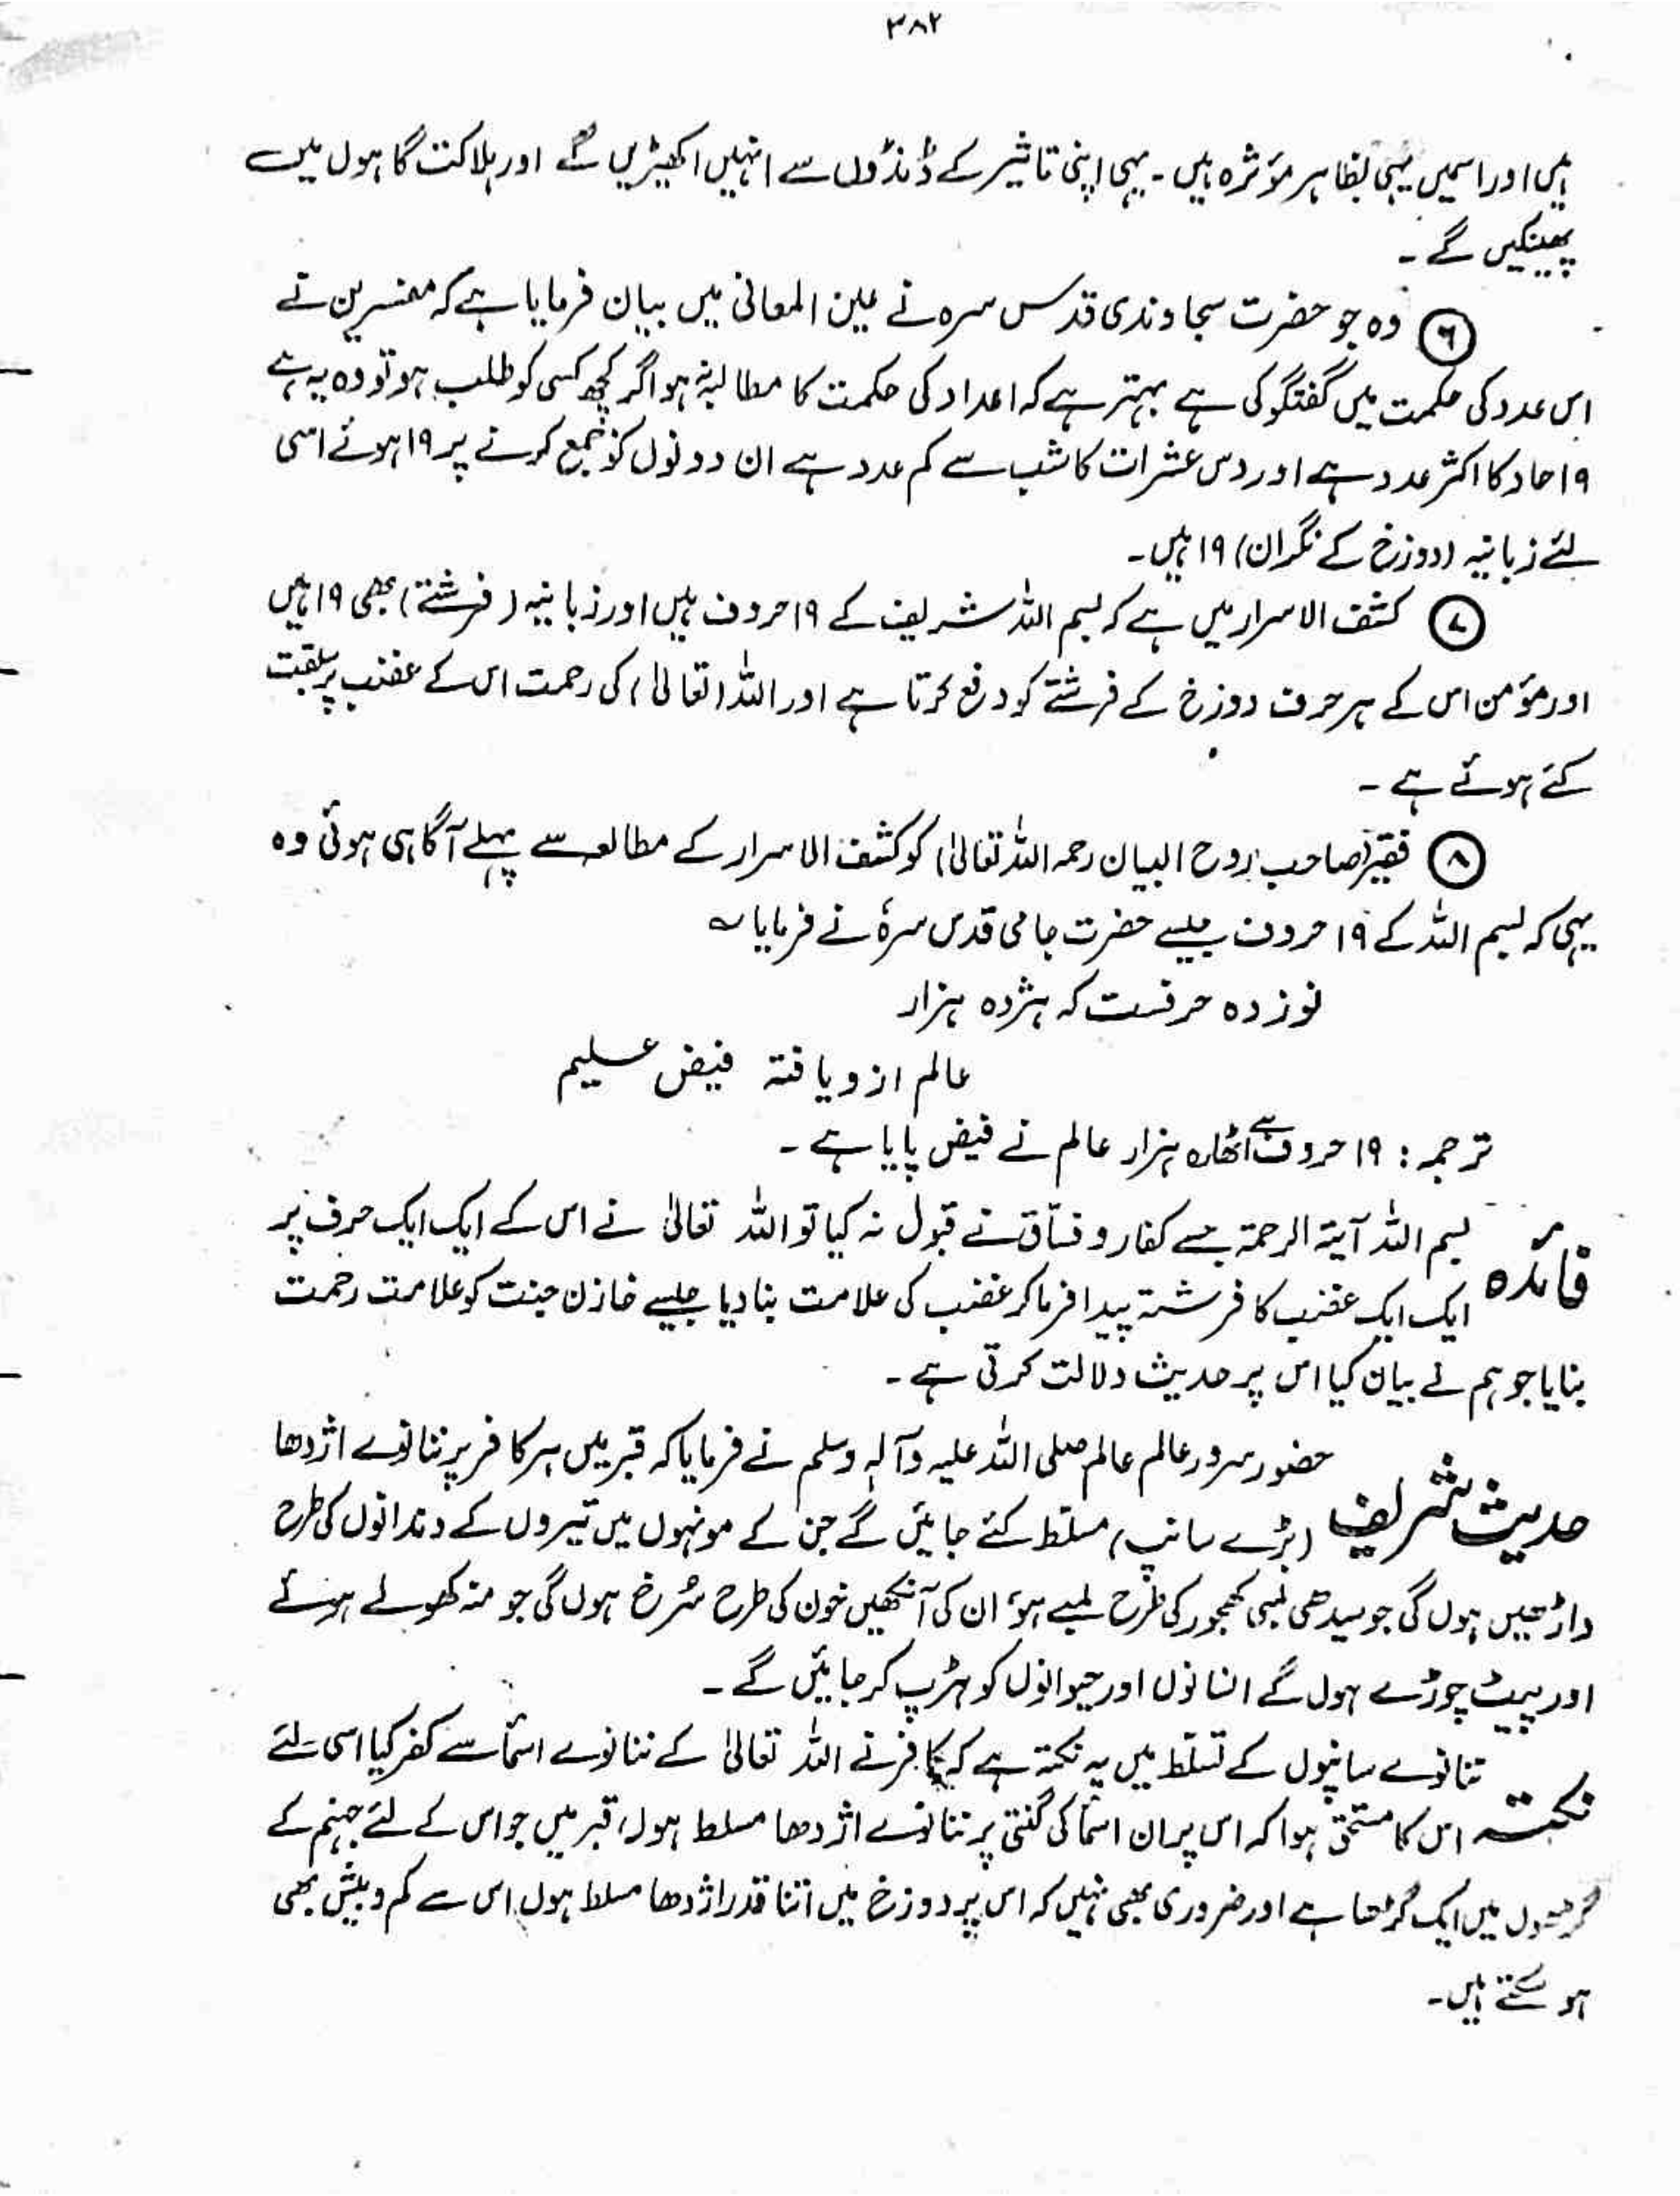 ۳۸۲
ہیں اور اسمیں یہی بظاہر مؤثرہ ہیں۔ یہی اپنی تاثیر کے ڈنڈوں سے انہیں اکھیڑیں گے اور ہلاکت گاہوں میں
پھینکیں گے۔
⑥ وہ جو حضرت سجاوندی قدس سرہ نے عین المعانی میں بیان فرمایا ہے کہ مفسرین نے
اس عدد کی حکمت میں گفتگو کی ہے بہتر ہے کہ اعداد کی حکمت کا مطالبہ نہ ہو اگر کچھ کسی کو طلب ہو تو وہ یہ ہے
۹ احاد کا اکثر عدد ہے اور دس عشرات کا سب سے کم عدد ہے ان دونوں کو جمع کرنے پر ۱۹ ہوئے اسی
لئے زبانیہ (دوزخ کے نگران) ۱۹ ہیں۔
⑦ کشف الاسرار میں ہے کہ بسم اللہ شریف کے ۱۹ حروف ہیں اور زبانیہ (فرشتے) بھی ۱۹ ہیں
اور مؤمن اس کے ہر حرف دوزخ کے فرشتے کو دفع کرتا ہے اور اللہ (تعالیٰ) کی رحمت اس کے غضب پر سبقت
کئے ہوئے ہے۔
⑧ فقیر (صاحب روح البیان رحمہ اللہ تعالیٰ) کو کشف الاسرار کے مطالعہ سے پہلے آگاہی ہوئی وہ
یہی کہ بسم اللہ کے ۱۹ حروف جیسے حضرت جامی قدس سرہٗ نے فرمایا ؎
نوزدہ حرفست کہ ہژدہ ہزار
عالم ازو یافتہ فیض عیلم
ترجمہ: ۱۹ حروف سے اٹھارہ ہزار عالم نے فیض پایا ہے۔
فائدہ بسم اللہ آیۃ الرحمۃ جسے کفار و فساق نے قبول نہ کیا تو اللہ تعالیٰ نے اس کے ایک ایک حرف پر
ایک ایک غضب کا فرشتہ پیدا فرما کر غضب کی علامت بنا دیا جیسے خازن جنت کو علامت رحمت
بنایا جو ہم نے بیان کیا اس پر حدیث دلالت کرتی ہے۔
حدیث شریف حضور سرور عالم عالم صلی اللہ علیہ وآلہٖ وسلم نے فرمایا کہ قبر میں ہر کافر پر ننانوے اژدھا
(بڑے سانپ) مسلط کئے جائیں گے جن کے مونہوں میں تیروں کے دندانوں کی طرح
داڑھیں ہوں گی جو سیدھی لمبی کھجور کی طرح لمبے ہو ان کی آنکھیں خون کی طرح سُرخ ہوں گی جو منہ کھولے ہوئے
اور پیٹ چوڑے ہوں گے انسانوں اور حیوانوں کو ہڑپ کر جائیں گے۔
نکتہ ننانوے سانپوں کے تسلط میں یہ نکتہ ہے کہ کافر نے اللہ تعالیٰ کے ننانوے اسمأ سے کفر کیا اسی لئے
اس کا مستحق ہوا کہ اس پر ان اسمأ کی گنتی پر ننانوے اژدھا مسلط ہوں، قبر میں جو اس کے لئے جہنم کے
گڑھوں میں ایک گڑھا ہے اور ضروری بھی نہیں کہ اس پر دوزخ میں اتنا قدر اژدھا مسلط ہوں اس سے کم و بیش بھی
ہو سکتے ہیں۔